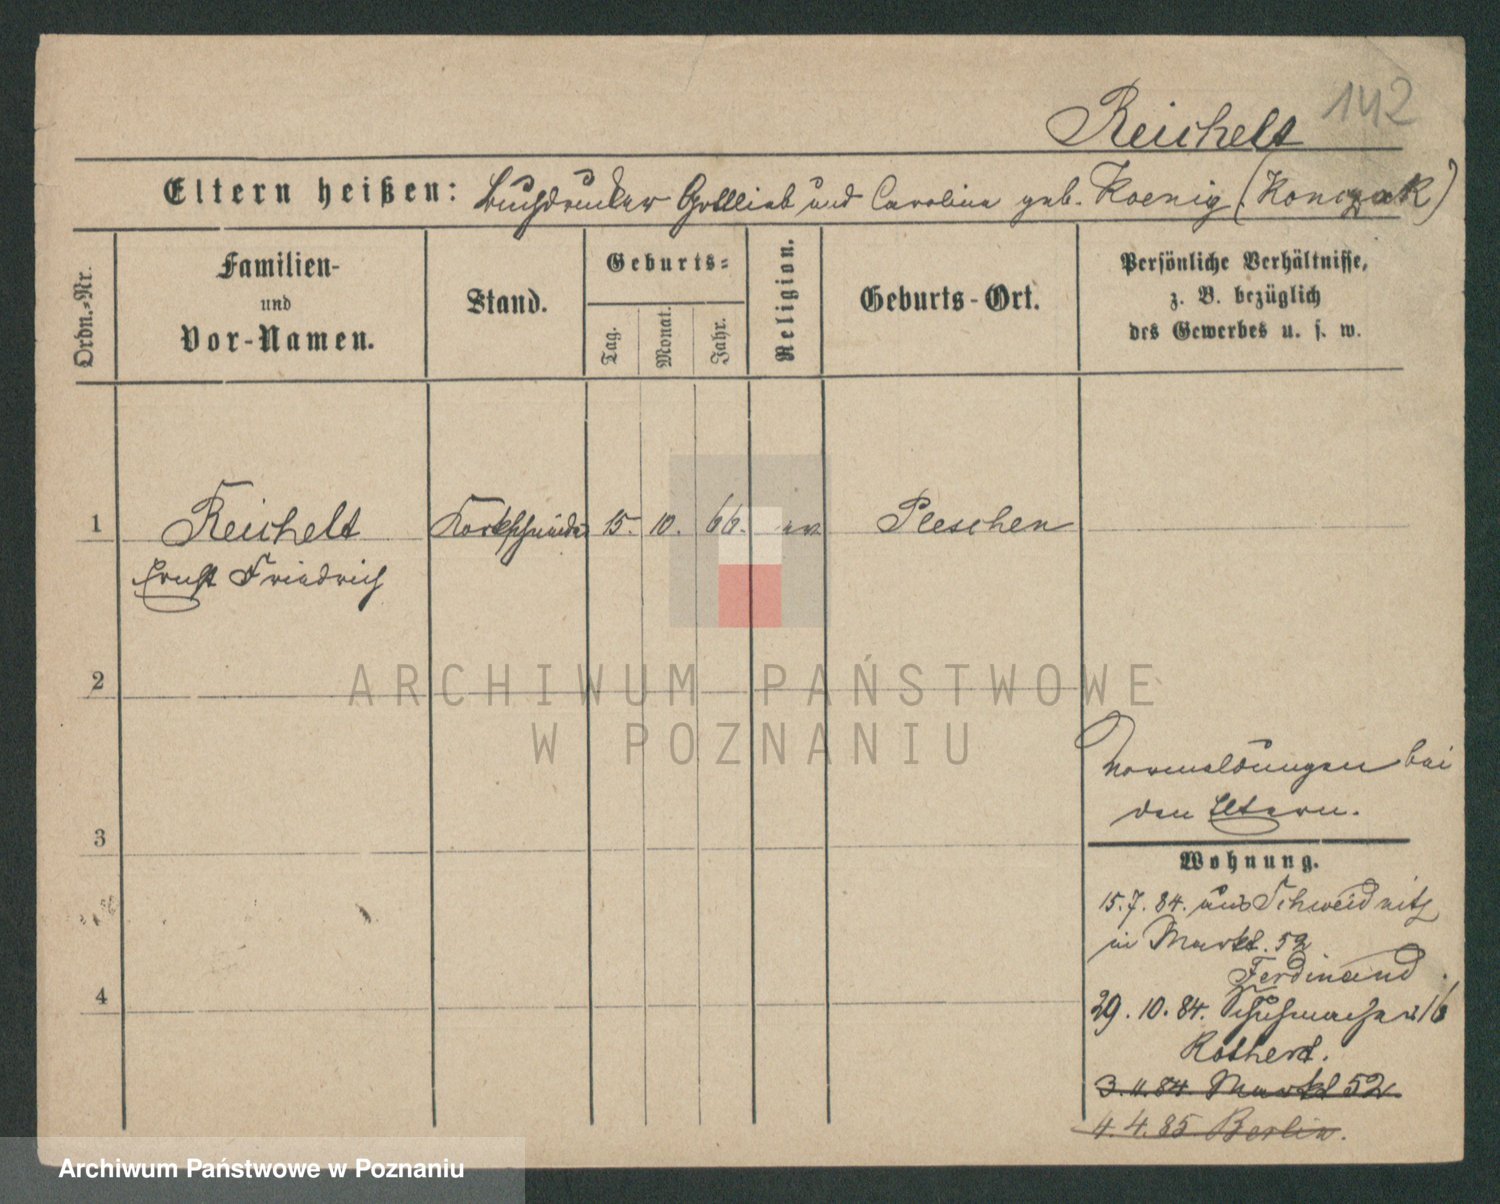 142
Reichelt
Eltern heißen: Buchdrucker Gottlieb und Caroline geb. Koenig (Konczak)
Ordn.-Nr.
Familien-
und
Vor-Namen.
Stand.
Geburts-
Tag.
Monat.
Jahr.
Religion.
Geburts-Ort.
Persönliche Verhältnisse,
z. B. bezüglich
des Gewerbes u. s. w.
1 Reichelt Korkschneider 15. 10. 66. ev. Pleschen
Ernst Friedrich
2
ARCHIWUM PAŃSTWOWE
W POZNANIU
Vormeldungen bei
den Eltern.
3
Wohnung.
15.7.84. aus Schweidnitz
in Markt. 52
Ferdinand
4
29.10.84. Schuhmacher 16
3.11.84. Markt 52
4.4.85 Berlin.
Archiwum Państwowe w Poznaniu